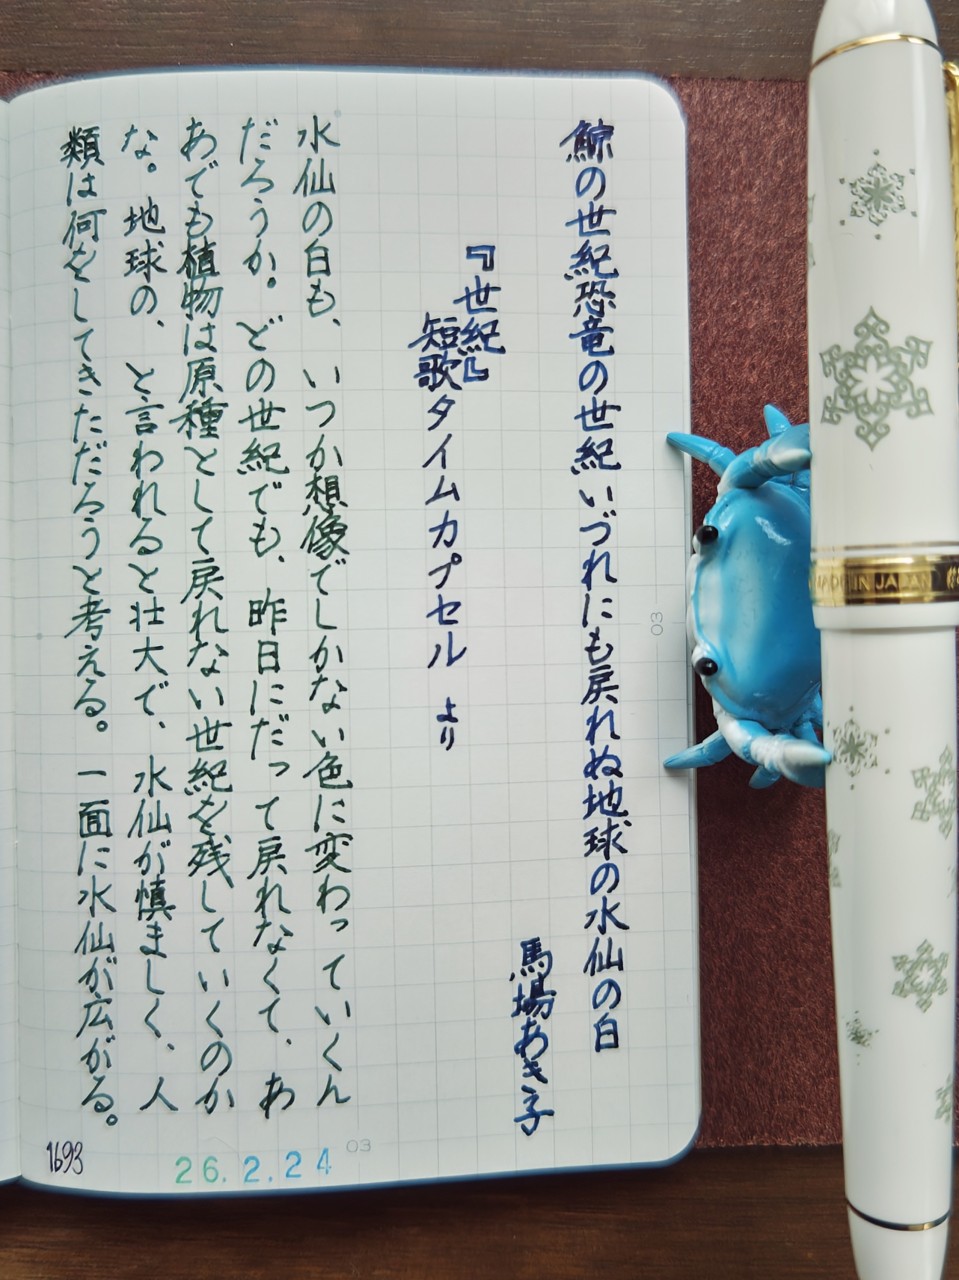 鯨の世紀恐竜の世紀いづれにも戻れぬ地球の水仙の白
馬場あき子
『世紀』
短歌タイムカプセル より
水仙の白も、いつか想像でしかない色に変わっていくん
だろうか。どの世紀でも、昨日にだって戻れなくて、あ
あでも植物は原種として戻れない世紀を残していくのか
な。地球の、と言われると壮大で、水仙が慎ましく、人
類は何をしてきただろうと考える。一面に水仙が広がる。
1693
26.2.24
03
03
MADE IN JAPAN